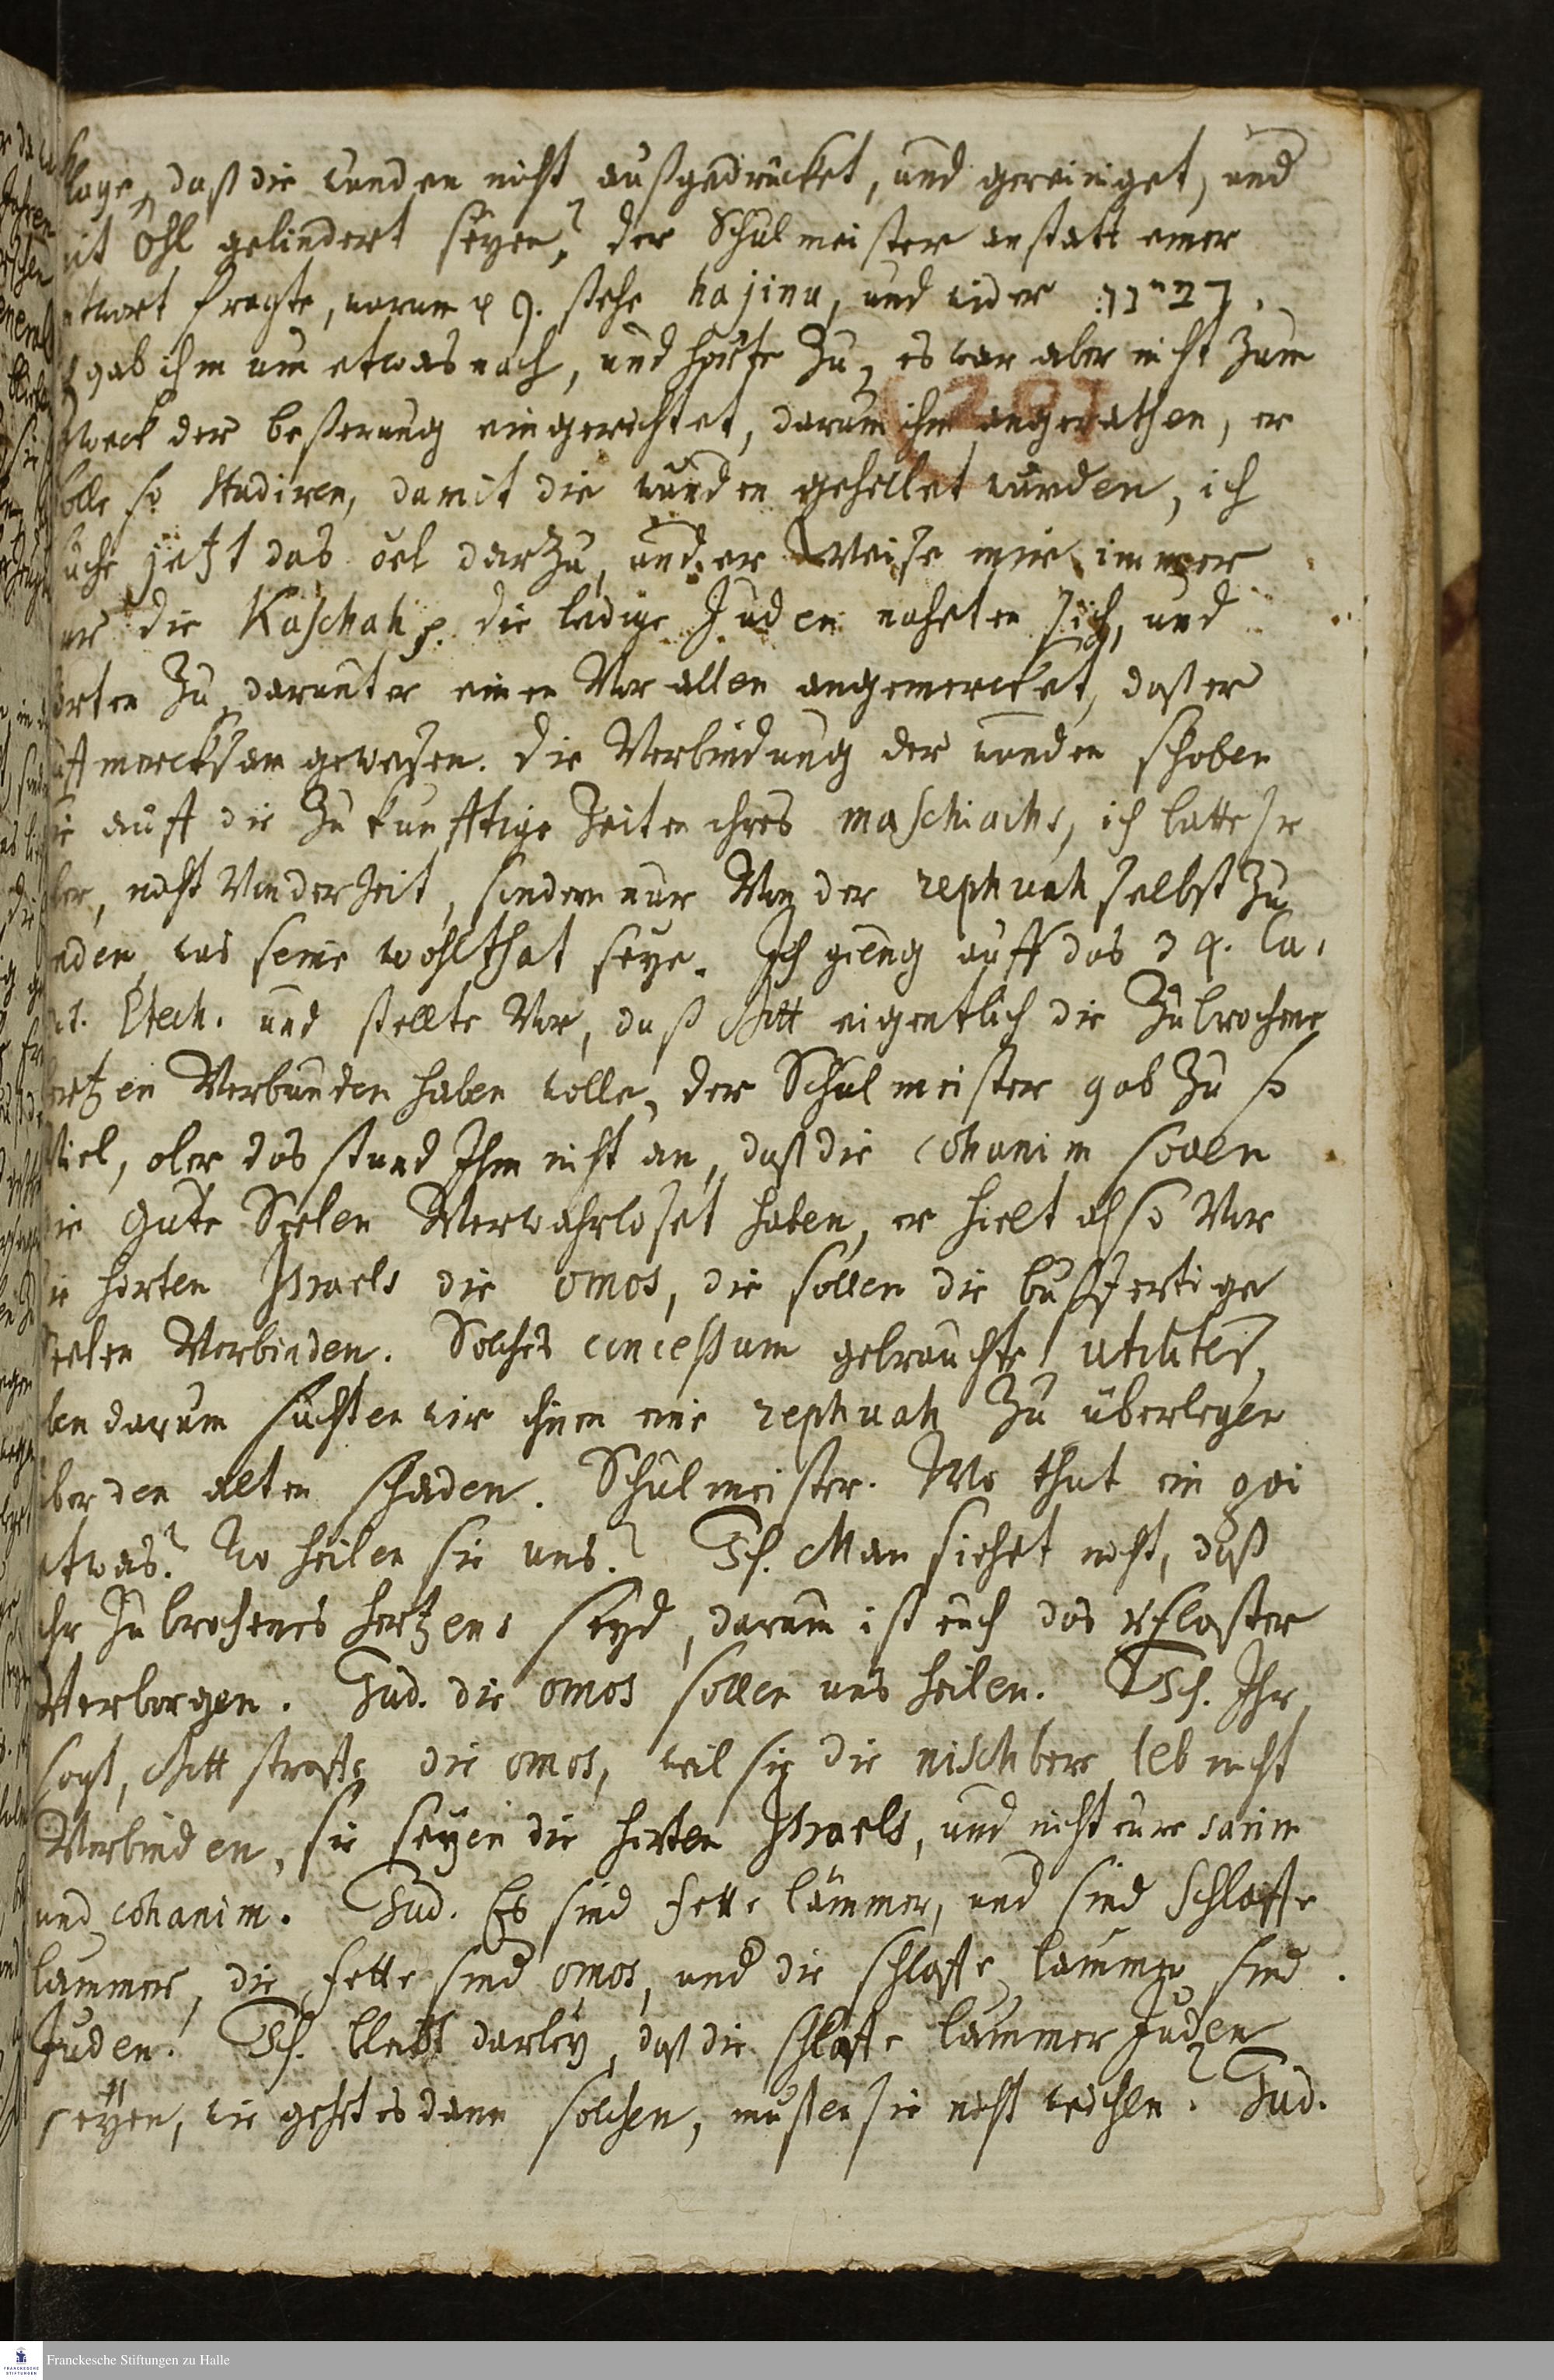 klage, daß die wunden nicht außgedrücket, und gereiniget, und
mit Ohl gelindert seyen? der Schulmeister anstatt einer
antwort fragte, warum p 9. stehe hajinu, und wider
ich gab ihm um etwas nach, und hörte zu, es war aber nicht zum
zweck der beßerung eingerichtet, darum ihm angerathen, er
solle so studiren, damit die wunden geheilet würden, ich
suche jetzt das öel darzu, und er weise mir immer
nur die Kaschah p. die ledige Juden nahten sich, und
hörten zu, darunter einen Vor allen angemercket, daß er
auffmercksam gewesen. die Verbindung der wunden schoben
sie auff die zukunfftige Zeiten ihres maschiachs, ich batte sie
aber, nicht Von der Zeit, sondern nur Von der rephuah selbst zu
reden, was seine wohlthat seye. Ich gieng auff das 34. Ca-
pit. Etech. und stellte Vor, daß Gott eigentlich die Zubrochene
hertzen Verbunden haben wolle, der Schulmeister gab zu so
Viel, aber das stund Ihm nicht an, daß die cohanim sollen
die gute Seelen Verwahrloset haben, er hielt also Vor
die hirten Israels die omos, die sollen die bußfertige
Seelen Verbinden. Solches concessum gebrauchte utiliter,
eben darum suchten wir ihnen eine rephuah zu überlegen
über den alten schaden. Schulmeister. Wo thut ein goi
etwas? wo heilen sie uns? Ich. Man siehet nicht, daß
ihr Zubrochenes hertzens seyd, darum ist euch das pflaster
Verborgen. Jud. die omos sollen uns heilen. Ich. Ihr
sagt, Gott straffe die omos, weil sie die nischbere leb nicht
Verbinden, sie seyen die hirten Israels, und nicht eure sarim
und cohanim. Jud. Es sind fette lämmer, und sind schlaffe
lämmer, die fette sind omos, und die schlaffe lämmer sind
Juden. Ich. bleibt darbey, daß die schlaffe lämmer Juden
seyen, wie geht es dann solchen, müßen sie nicht weichen? Jud.
Franckesche Stiftungen zu Halle